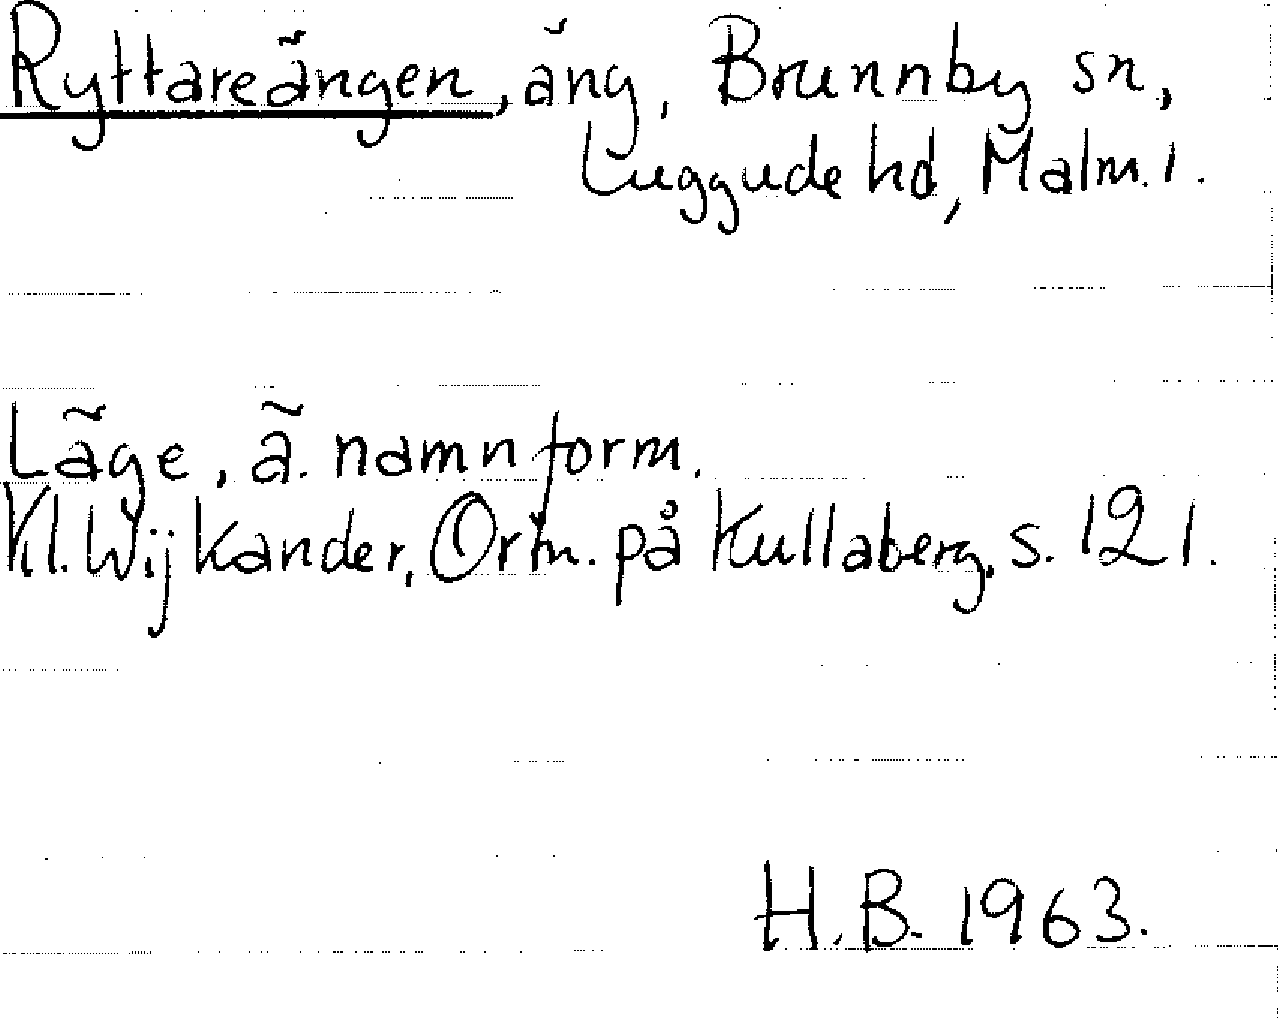 Ryttareängen, äng, Brunnby sn,
Luggude hd, Malm. l.
Läge, ä. namnform.
Kl. Wijkander, Ortn. på Kullaberg, s. 121.
H.B. 1963.